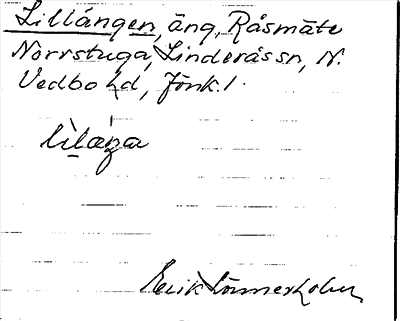 Lillängen, äng, Råsmäte
Norrstuga, Linderås sn, N.
Vedbo hd, Jönk. l.
Erik Lönnerholm